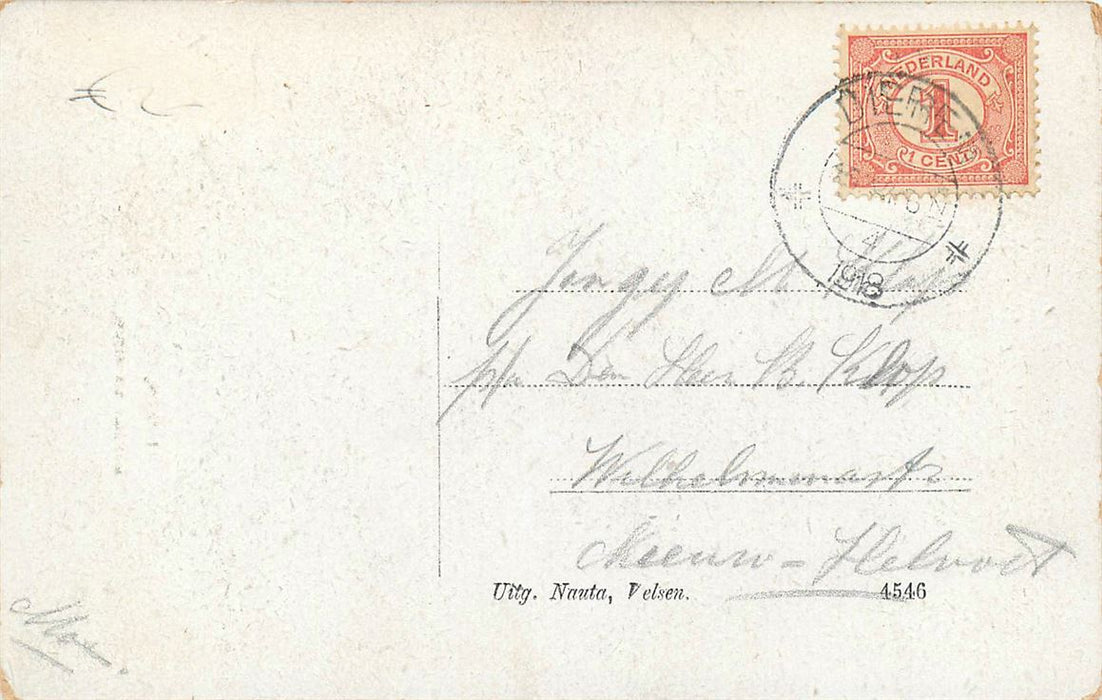 NEDERLAND
1
1 CENT
4
1918
Jongej M. Klop
p/a Den Heer B. Klop
Wilhelminastr
Nieuw-Helvoet
Uitg. Nauta, Velsen. 4546
Moe.